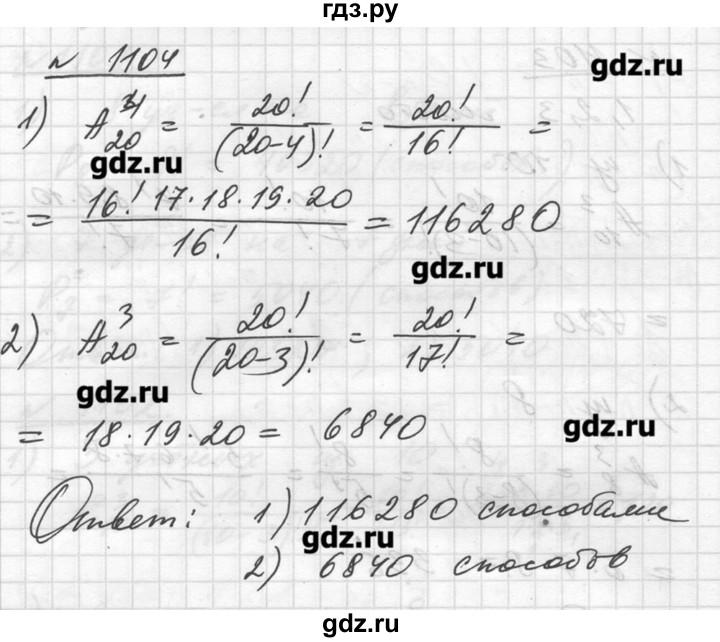 гдз.ру
№ 1104
gdz.ru
1) A⁴₂₀ = 20!/(20-4)! = 20!/16! =
gdz.ru
= 16! 17·18·19·20/16! = 116280
gdz.ru
2) A³₂₀ = 20!/(20-3)! = 20!/17! =
gdz.ru
= 18·19·20 = 6840
gdz.ru
Ответ: 1) 116280 способами
gdz.ru
2) 6840 способов
gdz.ru